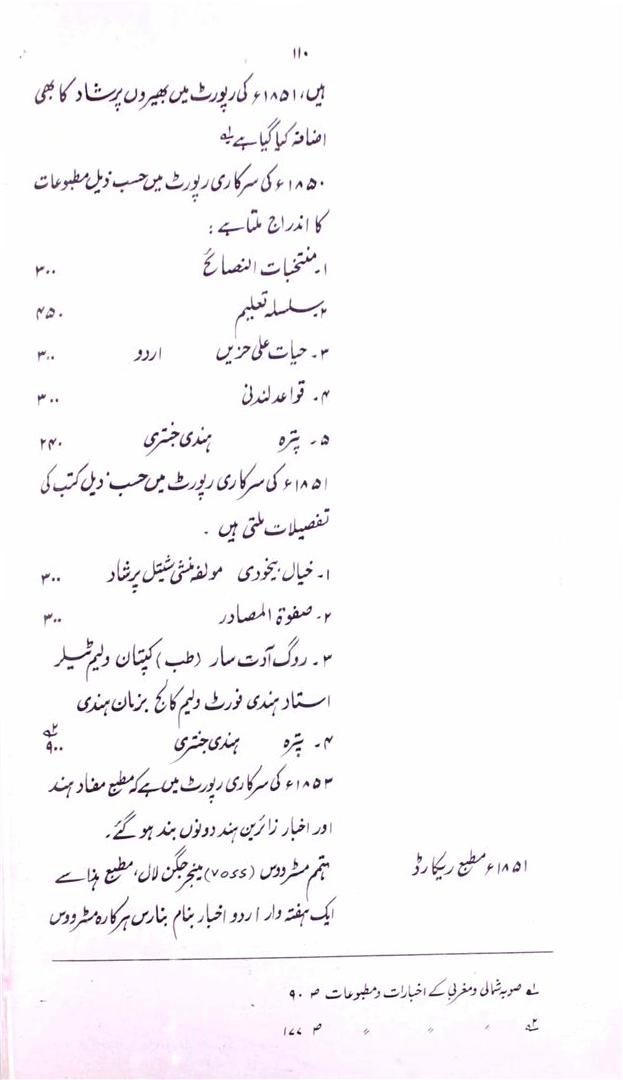 ۱۱۰
ہیں، ۱۸۵۱ء کی رپورٹ میں بھیروں پرشاد کا بھی
اضافہ کیا گیا ہے ؎۱
۱۸۵۰ء کی سرکاری رپورٹ میں حسب ذیل مطبوعات
کا اندراج ملتا ہے :
۱۔ منتخبات النصائح ۳۰۰
۲۔ سلسلہ تعلیم ۴۵۰
۳۔ حیات علی حزیں اردو ۳۰۰
۴۔ قواعد لندنی ۳۰۰
۵۔ پترہ ہندی جنتری ۲۴۰
۱۸۵۱ء کی سرکاری رپورٹ میں حسب ذیل کتب کی
تفصیلات ملتی ہیں ۔
۱۔ خیال بیخودی مولفہ منشی شیتل پرشاد ۳۰۰
۲۔ صفوۃ المصادر ۳۰۰
۳۔ روگ آدت سار (طب) کپتان ولیم ٹیلر
استاد ہندی فورٹ ولیم کالج بزبان ہندی
۴۔ پترہ ہندی جنتری ۹۰۰ ؎۲
۱۸۵۳ء کی سرکاری رپورٹ میں ہے کہ مطبع مفاد ہند
اور اخبار زائرین ہند دونوں بند ہو گئے۔
۱۸۵۱ء مطبع ریکارڈ مہتمم مسٹر ووس (VOSS) مینجر جگن لال، مطبع ہذا سے
ایک ہفتہ وار اردو اخبار بنام بنارس ہرکارہ مسٹر ووس
؎۱ صوبہ شمالی و مغربی کے اخبارات و مطبوعات ص ۹۰
؎۲ ״ ״ ״ ״ ص ۱۷۷